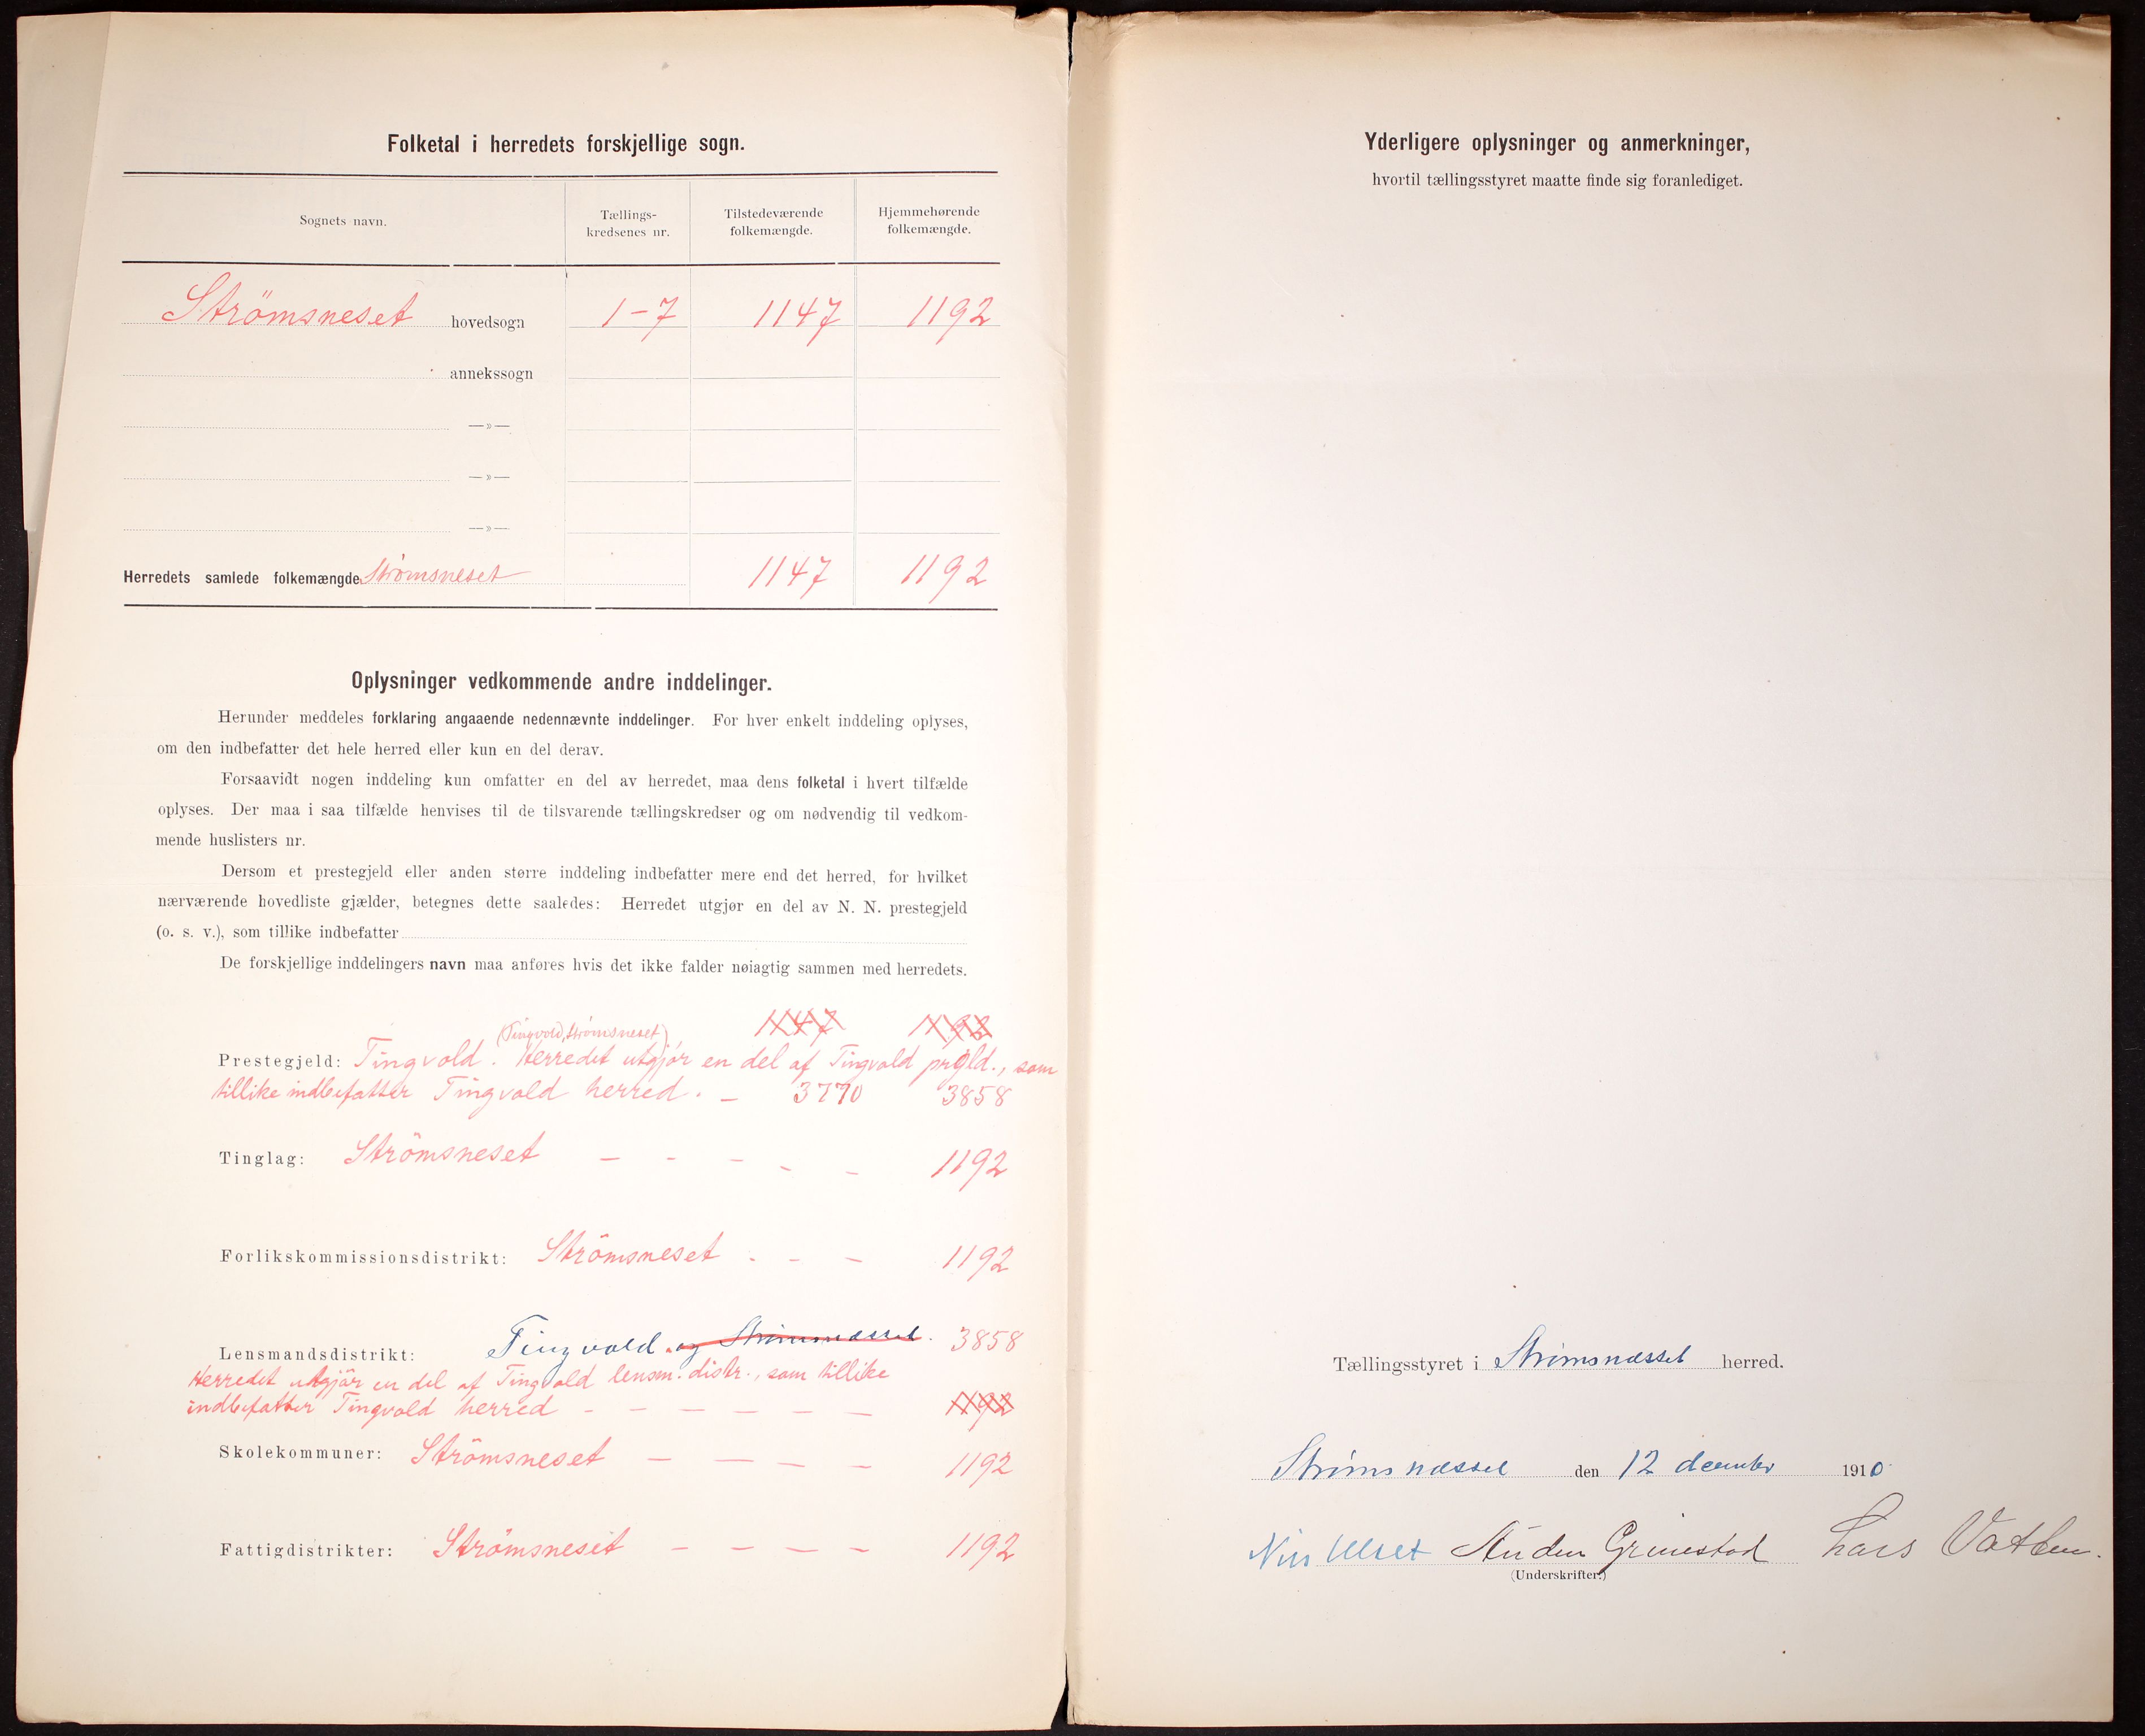 Folketal i herredets forskjellige sogn.
Sognets navn.
Tællings-
kredsenes nr.
Tilstedeværende
folkemængde.
Hjemmehørende
folkemængde.
Strömsneset hovedsogn 1-7 1147 1192
annekssogn
—»—
—»—
—»—
Herredets samlede folkemængde Strømsneset 1147 1192
Oplysninger vedkommende andre inddelinger.
Herunder meddeles forklaring angaaende nedennævnte inddelinger. For hver enkelt inddeling oplyses,
om den indbefatter det hele herred eller kun en del derav.
Forsaavidt nogen inddeling kun omfatter en del av herredet, maa dens folketal i hvert tilfælde
oplyses. Der maa i saa tilfælde henvises til de tilsvarende tællingskredser og om nødvendig til vedkom-
mende huslisters nr.
Dersom et prestegjeld eller anden større inddeling indbefatter mere end det herred, for hvilket
nærværende hovedliste gjælder, betegnes dette saaledes: Herredet utgjør en del av N. N. prestegjeld
(o. s. v.), som tillike indbefatter
De forskjellige inddelingers navn maa anføres hvis det ikke falder nøiagtig sammen med herredets.
(Tingvold, Strømsneset) 1147 1192
Prestegjeld: Tingvold. Herredet utgjör en del af Tingvold prgld., som
tillike indbefatter Tingvold herred. – 3770 3858
Tinglag: Strömsneset – – – – – 1192
Forlikskommissionsdistrikt: Strömsneset – – – 1192
Lensmandsdistrikt: Tingvold og Strømsnæsset. 3858
Herredet utgjör en del af Tingvold lensm. distr., som tillike
indbefatter Tingvold herred – – – – – – 1192
Skolekommuner: Strömsneset – – – – 1192
Fattigdistrikter: Strömsneset – – – – 1192
Yderligere oplysninger og anmerkninger,
hvortil tællingsstyret maatte finde sig foranlediget.
Tællingsstyret i Strømsnæsset herred.
Strømsnæsset den 12 december 1910
Nils Ulset Auden Grimestad Lars Vatten.
(Underskrifter.)